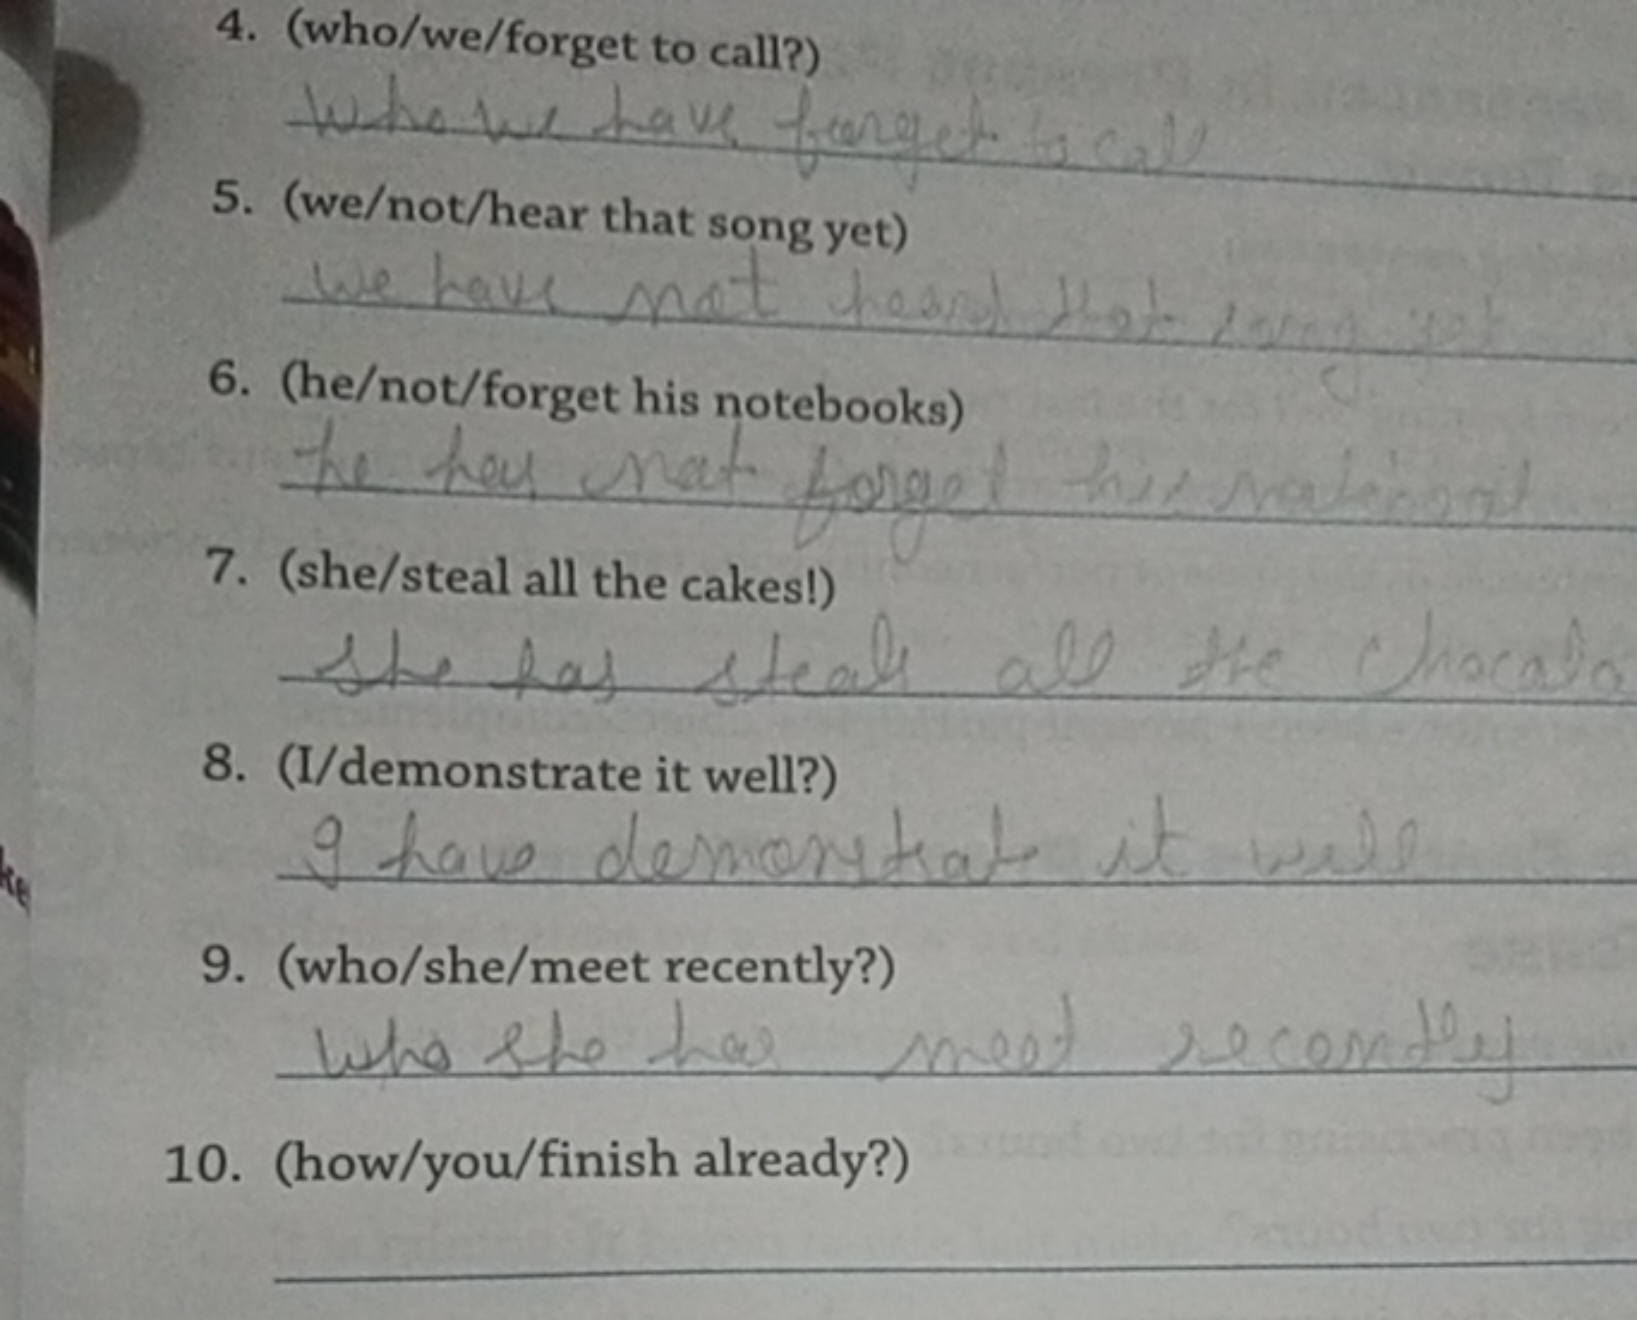 4. (who/we/forget to call?)
Who we have forget to call
5. (we/not/hear that song yet)
we have not heard that song yet
6. (he/not/forget his notebooks)
he has not forget his
7. (she/steal all the cakes!)
She has steal all the
8. (I/demonstrate it well?)
I have it well
9. (who/she/meet recently?)
Who she has meet recently
10. (how/you/finish already?)